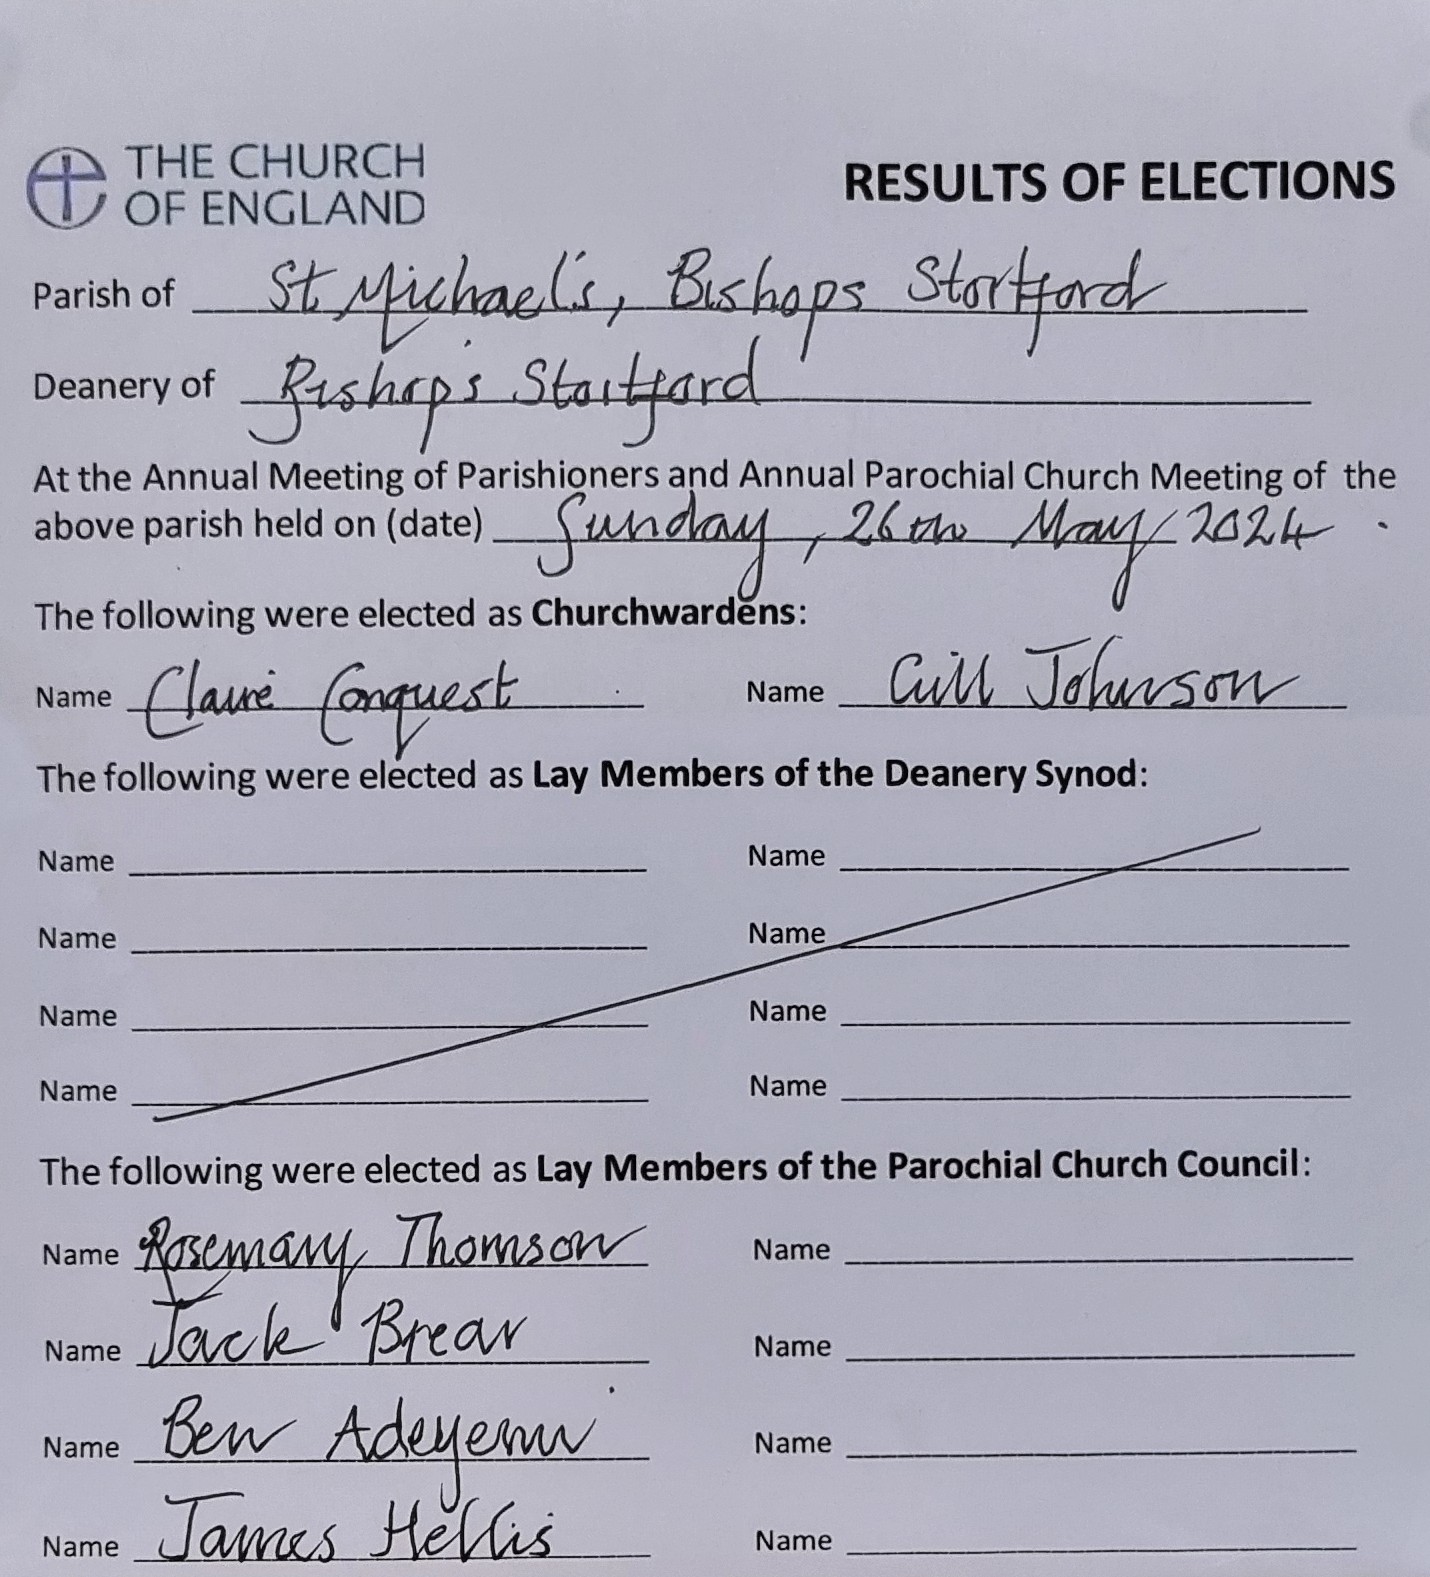 THE CHURCH
OF ENGLAND
RESULTS OF ELECTIONS
Parish of St Michael's, Bishops Stortford
Deanery of Bishop's Stortford
At the Annual Meeting of Parishioners and Annual Parochial Church Meeting of the
above parish held on (date) Sunday, 26th May 2024.
The following were elected as Churchwardens:
Name Claire Conquest Name Gill Johnson
The following were elected as Lay Members of the Deanery Synod:
Name Name
Name Name
Name Name
Name Name
The following were elected as Lay Members of the Parochial Church Council:
Name Rosemary Thomson Name
Name Jack Brear Name
Name Ben Adeyemi Name
Name James Hellis Name